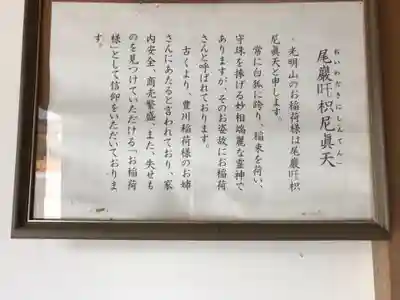 尾巖吒枳尼眞天
おいわだきにしんてん
光明山のお稲荷様は尾巖吒枳
尼眞天と申します。
常に白狐に跨り、稲束を荷い、
守珠を捧げる妙相端麗な霊神で
ありますが、そのお姿故にお稲荷
さんと呼ばれております。
古くより、豊川稲荷様のお姉
さんにあたると言われており、家
内安全、商売繁盛、また、失せも
のを見つけていただける「お稲荷
様」として信仰をいただいておりま
す。